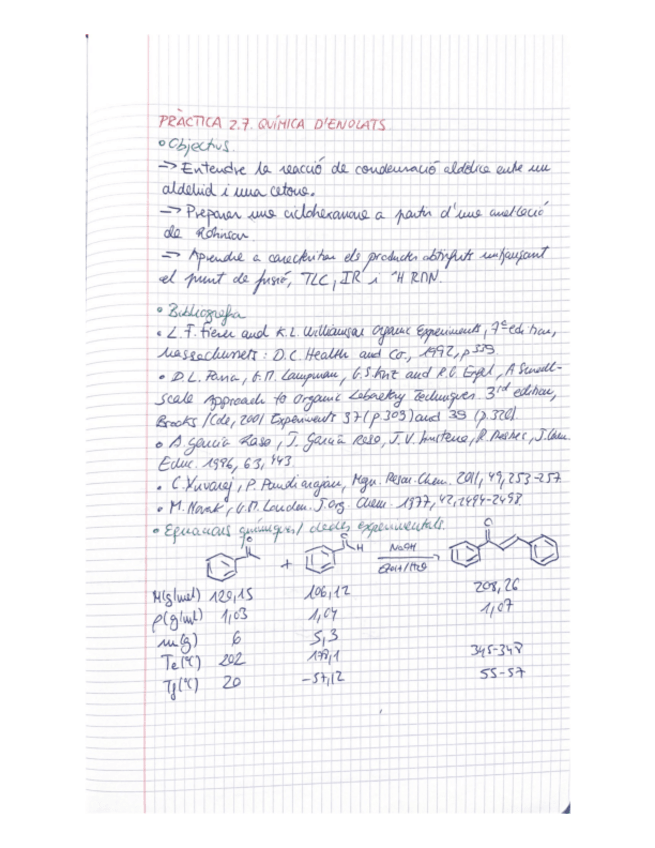 PRÀCTICA 2.7. QUÍMICA D'ENOLATS
• Objectius
-> Entendre la reacció de condensació aldòlica entre un
aldehid i una cetona.
-> Preparar una ciclohexanona a partir d'una anel·lació
de Robinson.
-> Aprendre a caracteritzar els productes obtinguts mitjançant
el punt de fusió, TLC, IR i ¹H RMN.
• Bibliografia
• L.F. Fieser and K.L. Williamson Organic Experiments, 7ª edition,
Massachussets: D.C. Health and Co., 1992, p 339
• D.L. Pavia, G.M. Lampman, G.S. Kriz and R.G. Engel, A Small-
scale Approach to Organic Laboratory Techniques. 3rd edition,
Brooks/Cole, 2001 Experiments 37 (p 309) and 39 (p. 320)
• A. García Raso, J. García Raso, J.V. R. J. Chem
Educ. 1986, 63, 443
• C. Yuvaraj, P. Pandiarajan, 2011, 49, 253-257
• M. Novak, G.M. Loudon. J. Org. Chem. 1977, 42, 2494-2498
• Equacions químiques / dades experimentals.
O O H O
+ NaOH
EtOH/H2O
M(g/mol) 120,15 106,12 208,26
ρ(g/ml) 1,03 1,04 1,07
m(g) 6 5,3
Te(ºC) 202 178,1 345-348
Tf(ºC) 20 -57,12 55-57